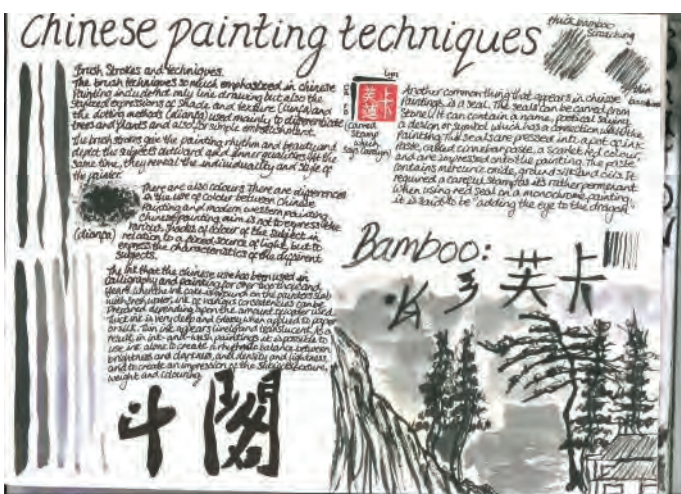 Chinese painting techniques
thick bamboo
scratching
thin
bamboo
Brush Strokes and techniques.
The brush techniques so much emphasized in chinese
Painting include not only line drawing but also the
stylized expressions of shade and texture (cunfa) and
the dotting methods (dianfa) used mainly to differentiate
trees and plants and also for simple embellishment.
The brush strokes give the painting rhythm and beauty and
depict the subject's outward and inner qualities. At the
same time, they reveal the individuality and style of
the painter.
(dianfa)
There are also colours. There are differences
in the use of colour between Chinese
Painting and modern western painting.
Chinese painting aim is not to express the
various shades of colour of the subject in
relation to a fixed source of light, but to
express the characteristics of the different
subjects.
The ink that the chinese use has been used in
calligraphy and painting for over two thousand
years. When the ink cake is ground on the painters slab
with fresh water, ink of various consistencies can be
Prepared depending upon the amount of water used.
Thick ink is very deep and glossy when applied to paper
or silk. Thin ink appears lively and translucent. As a
result, in ink-and-wash paintings it is possible to
use ink alone to create a rhythmic balance between
brightness and darkness, and density and lightness,
and to create an impression of the subject's texture,
weight and colouring.
(carved
stamp
which
says
Another common thing that appears in chinese
Paintings is a seal. The seals can be carved from
Stone. It can contain a name, poetical saying,
a design or symbol which has a connection with the
Painting. The seals are pressed into a pot of ink
Paste, called cinnebar paste, a scarlet red colour,
and are impressed onto the painting. The paste
contains mercuric oxide, ground silk and oils. It
required a careful stamp as its rather permanent
when using red seal on a monochrome painting,
it is said to be "adding the eye to the dragon"
Bamboo:
芙卡